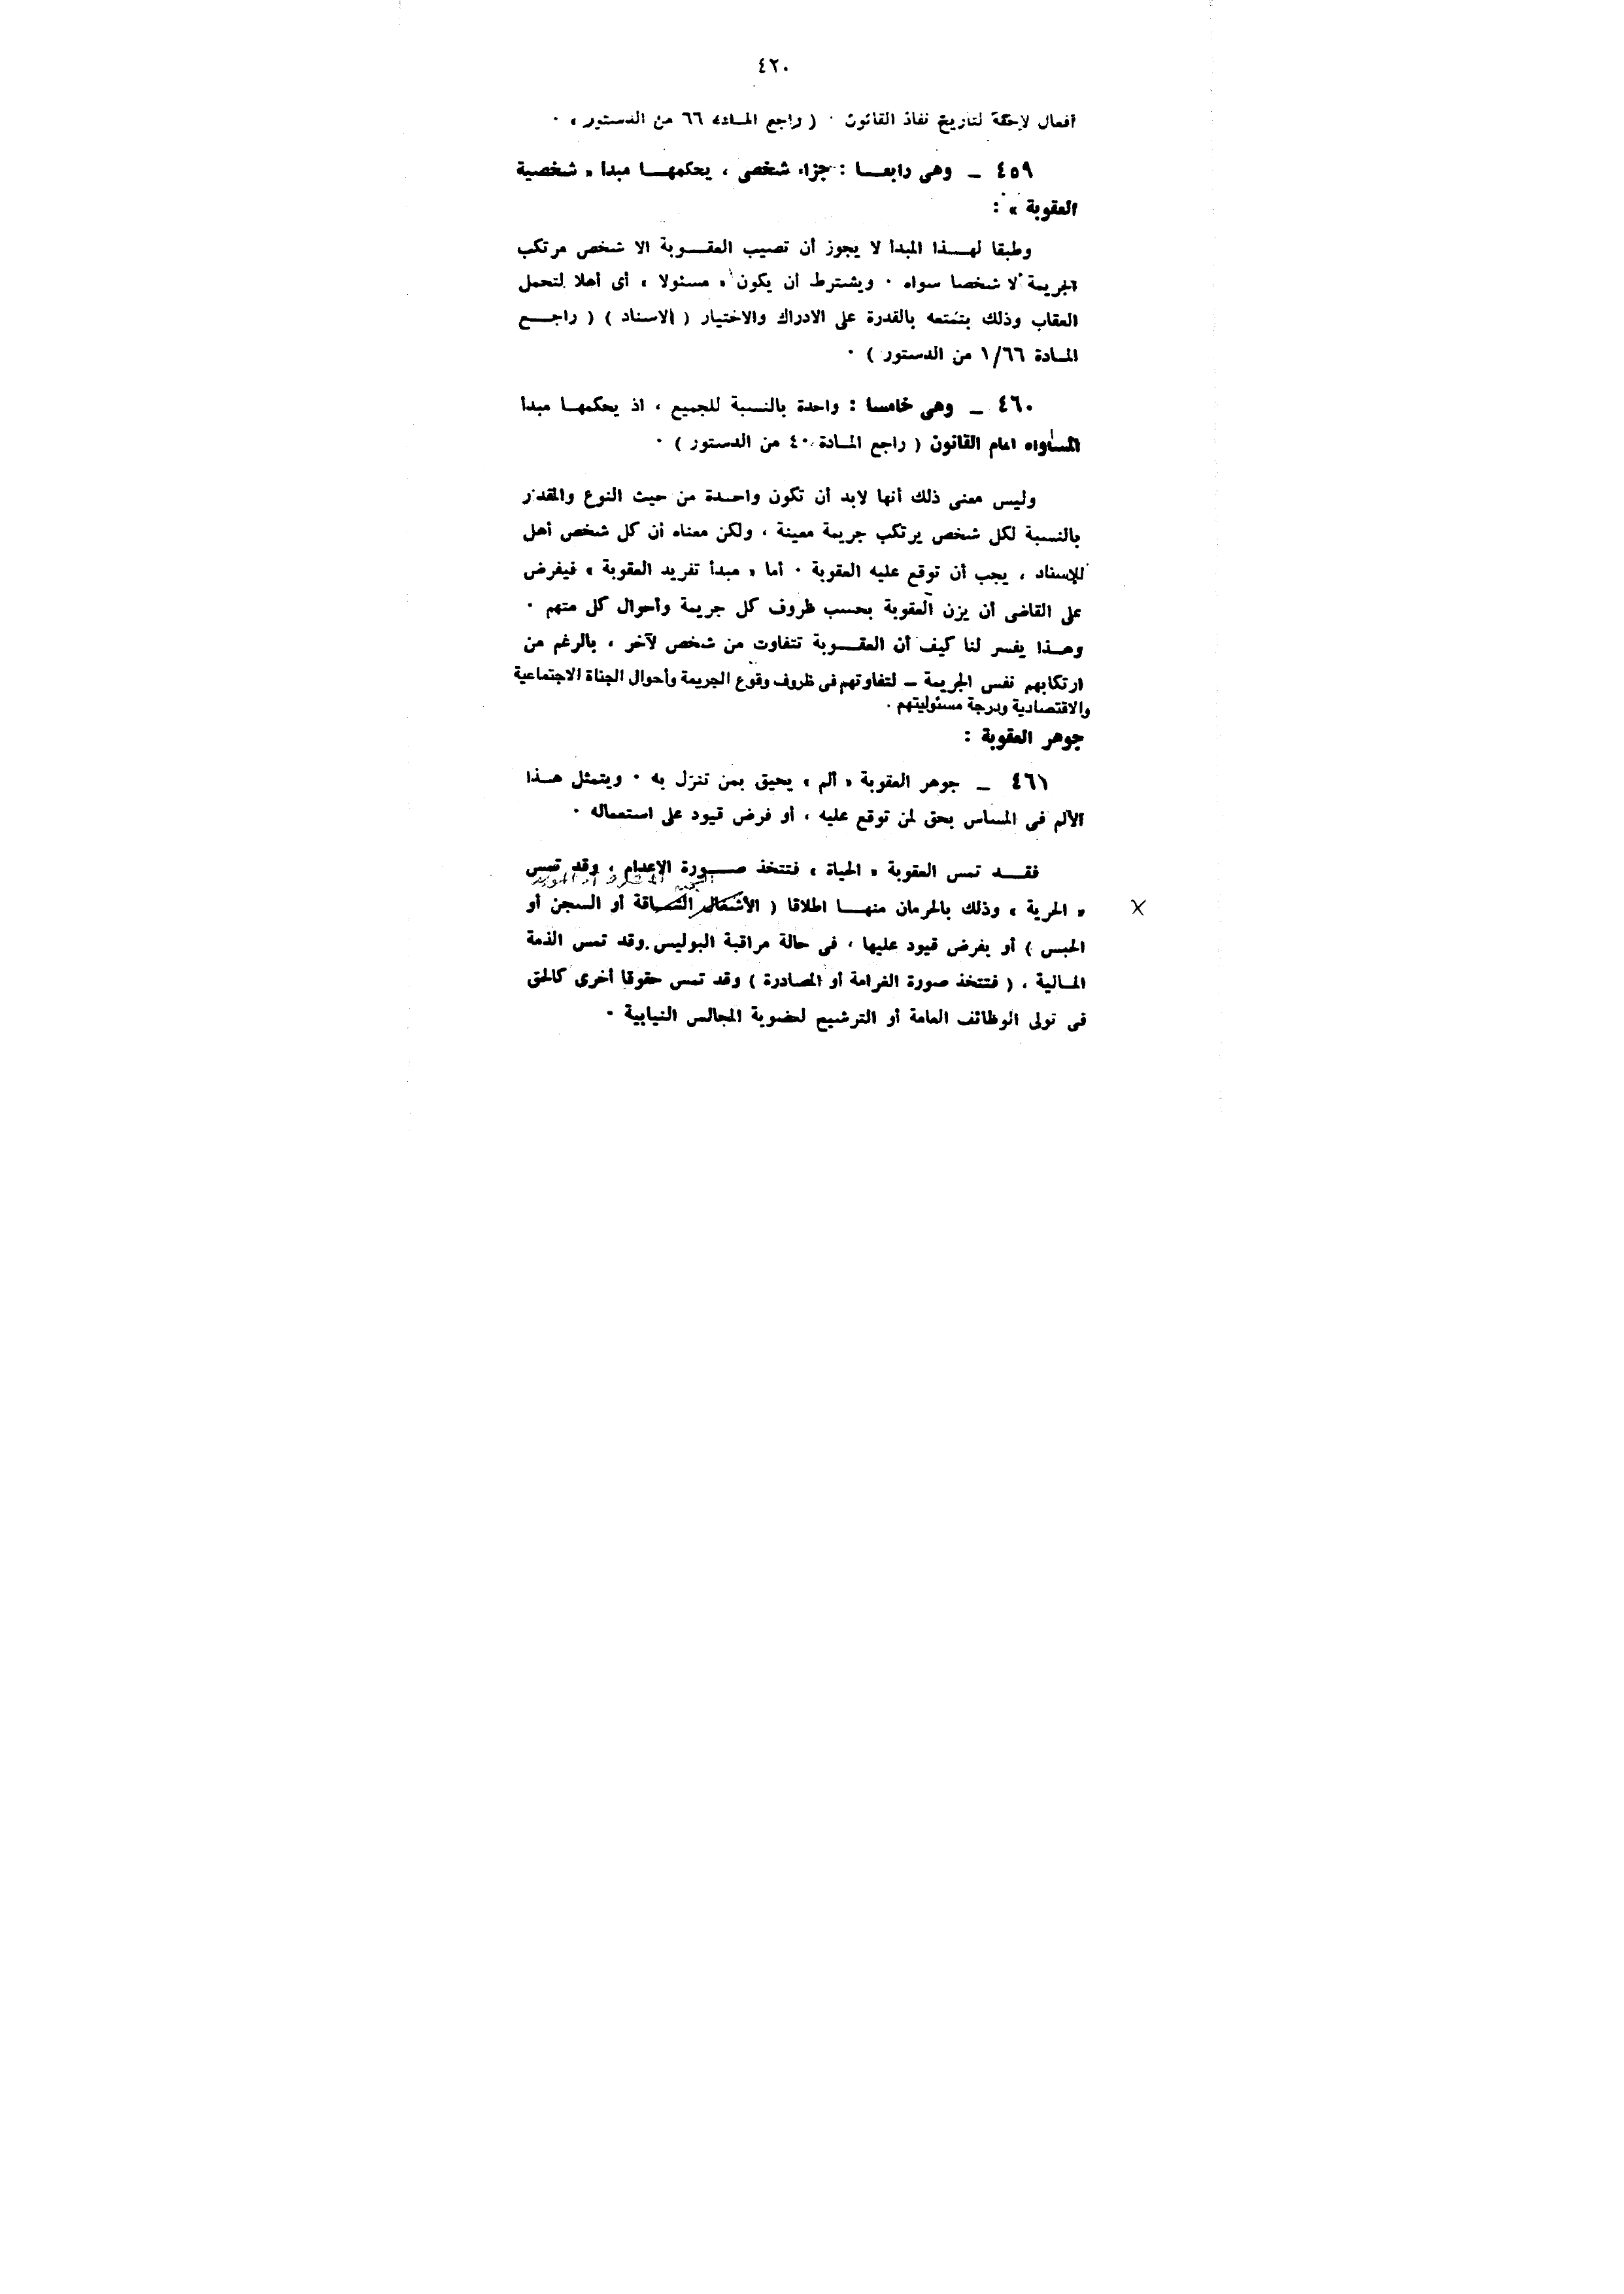 ٤٢٠
أفعال لاحقة لتاريخ نفاذ القانون ٠ ( راجع المادة ٦٦ من الدستور » ٠
٤٥٩ ــ وهى رابعا : جزاء شخصى ، يحكمها مبدأ « شخصية
العقوبة » :
وطبقا لهذا المبدأ لا يجوز أن تصيب العقوبة الا شخص مرتكب
الجريمة لا شخصا سواه ٠ ويشترط أن يكون « مسئولا » أى أهلا لتحمل
العقاب وذلك بتمتعه بالقدرة على الادراك والاختيار ( الاسناد ) ( راجع
المادة ١/٦٦ من الدستور ) ٠
٤٦٠ ــ وهى خامسا : واحدة بالنسبة للجميع ، اذ يحكمها مبدأ
المساواه امام القانون ( راجع المادة ٤٠ من الدستور ) ٠
وليس معنى ذلك أنها لابد أن تكون واحدة من حيث النوع والمقدار
بالنسبة لكل شخص يرتكب جريمة معينة ، ولكن معناه أن كل شخص أهل
للإسناد ، يجب أن توقع عليه العقوبة ٠ أما « مبدأ تفريد العقوبة » فيفرض
على القاضى أن يزن العقوبة بحسب ظروف كل جريمة وأحوال كل متهم ٠
وهذا يفسر لنا كيف أن العقوبة تتفاوت من شخص لآخر ، بالرغم من
ارتكابهم نفس الجريمة ــ لتفاوتهم فى ظروف وقوع الجريمة وأحوال الجناة الاجتماعية
والاقتصادية ودرجة مسئوليتهم ٠
جوهر العقوبة :
٤٦١ ــ جوهر العقوبة « ألم » يحيق بمن تنزل به ٠ ويتمثل هذا
الألم فى المساس بحق لمن توقع عليه ، أو فرض قيود على استعماله ٠
فقد تمس العقوبة « الحياة » فتتخذ صورة الإعدام ، وقد تمس
« الحرية » وذلك بالحرمان منها اطلاقا ( الأشغال الشاقة أو السجن أو
الحبس ) أو بفرض قيود عليها ، فى حالة مراقبة البوليس. وقد تمس الذمة
المالية ، ( فتتخذ صورة الغرامة أو المصادرة ) وقد تمس حقوقا أخرى كالحق
فى تولى الوظائف العامة أو الترشيح لعضوية المجالس النيابية ٠